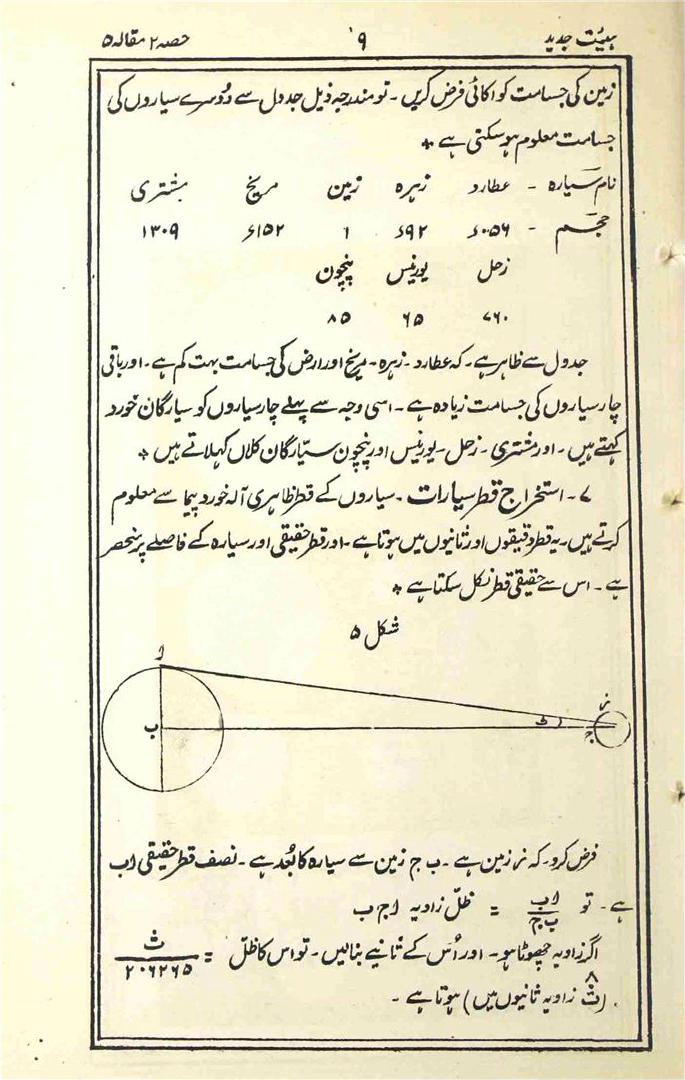 ہیئت جدید ۹ حصہ ۲ مقالہ ۵
زمین کی جسامت کو اکائی فرض کریں۔ تو مندرجہ ذیل جدول سے دوسرے سیاروں کی
جسامت معلوم ہو سکتی ہے *
نام سیارہ - عطارد زہرہ زمین مریخ مشتری
حجم - ۰۵۶ء ۹۲ء ۱ ۱۵۲ء ۱۳۰۹
زحل یورنیس نپچون
۷۶۰ ۶۵ ۸۵
جدول سے ظاہر ہے۔ کہ عطارد۔ زہرہ۔ مریخ اور ارض کی جسامت بہت کم ہے۔ اور باقی
چار سیاروں کی جسامت زیادہ ہے۔ اسی وجہ سے پہلے چار سیاروں کو سیارگان خورد
کہتے ہیں۔ اور مشتری۔ زحل۔ یورنیس اور نپچون سیّارگان کلاں کہلاتے ہیں *
۷۔ استخراج قطر سیارات۔ سیاروں کے قطر ظاہری آلہ خورد پیما سے معلوم
کرتے ہیں۔ یہ قطر دقیقوں اور ثانیوں میں ہوتا ہے۔ اور قطر حقیقی اور سیارہ کے فاصلے پر منحصر
ہے۔ اس سے حقیقی قطر نکل سکتا ہے *
شکل ۵
ا
ب
ج
فرض کرو۔ کہ ز زمین ہے۔ ب ج زمین سے سیارہ کا بُعد ہے۔ نصف قطر حقیقی اب
ہے۔ تو اب / ب ج = ظلّ زاویہ ا ج ب
اگر زاویہ چھوٹا ہو۔ اور اُس کے ثانیے بنالیں۔ تو اس کا ظل = ث / ۲۰۶۲۶۵
(ث زاویہ ثانیوں میں) ہوتا ہے۔